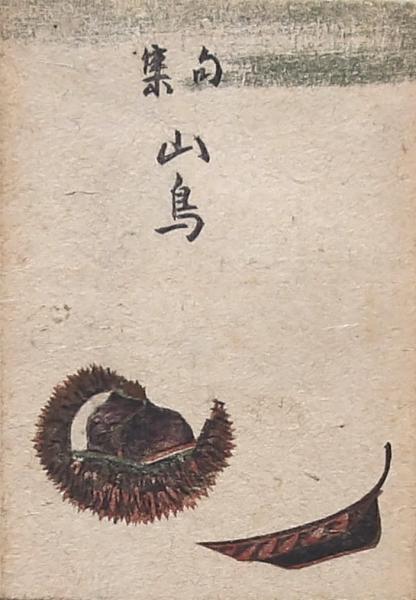 句集
山鳥